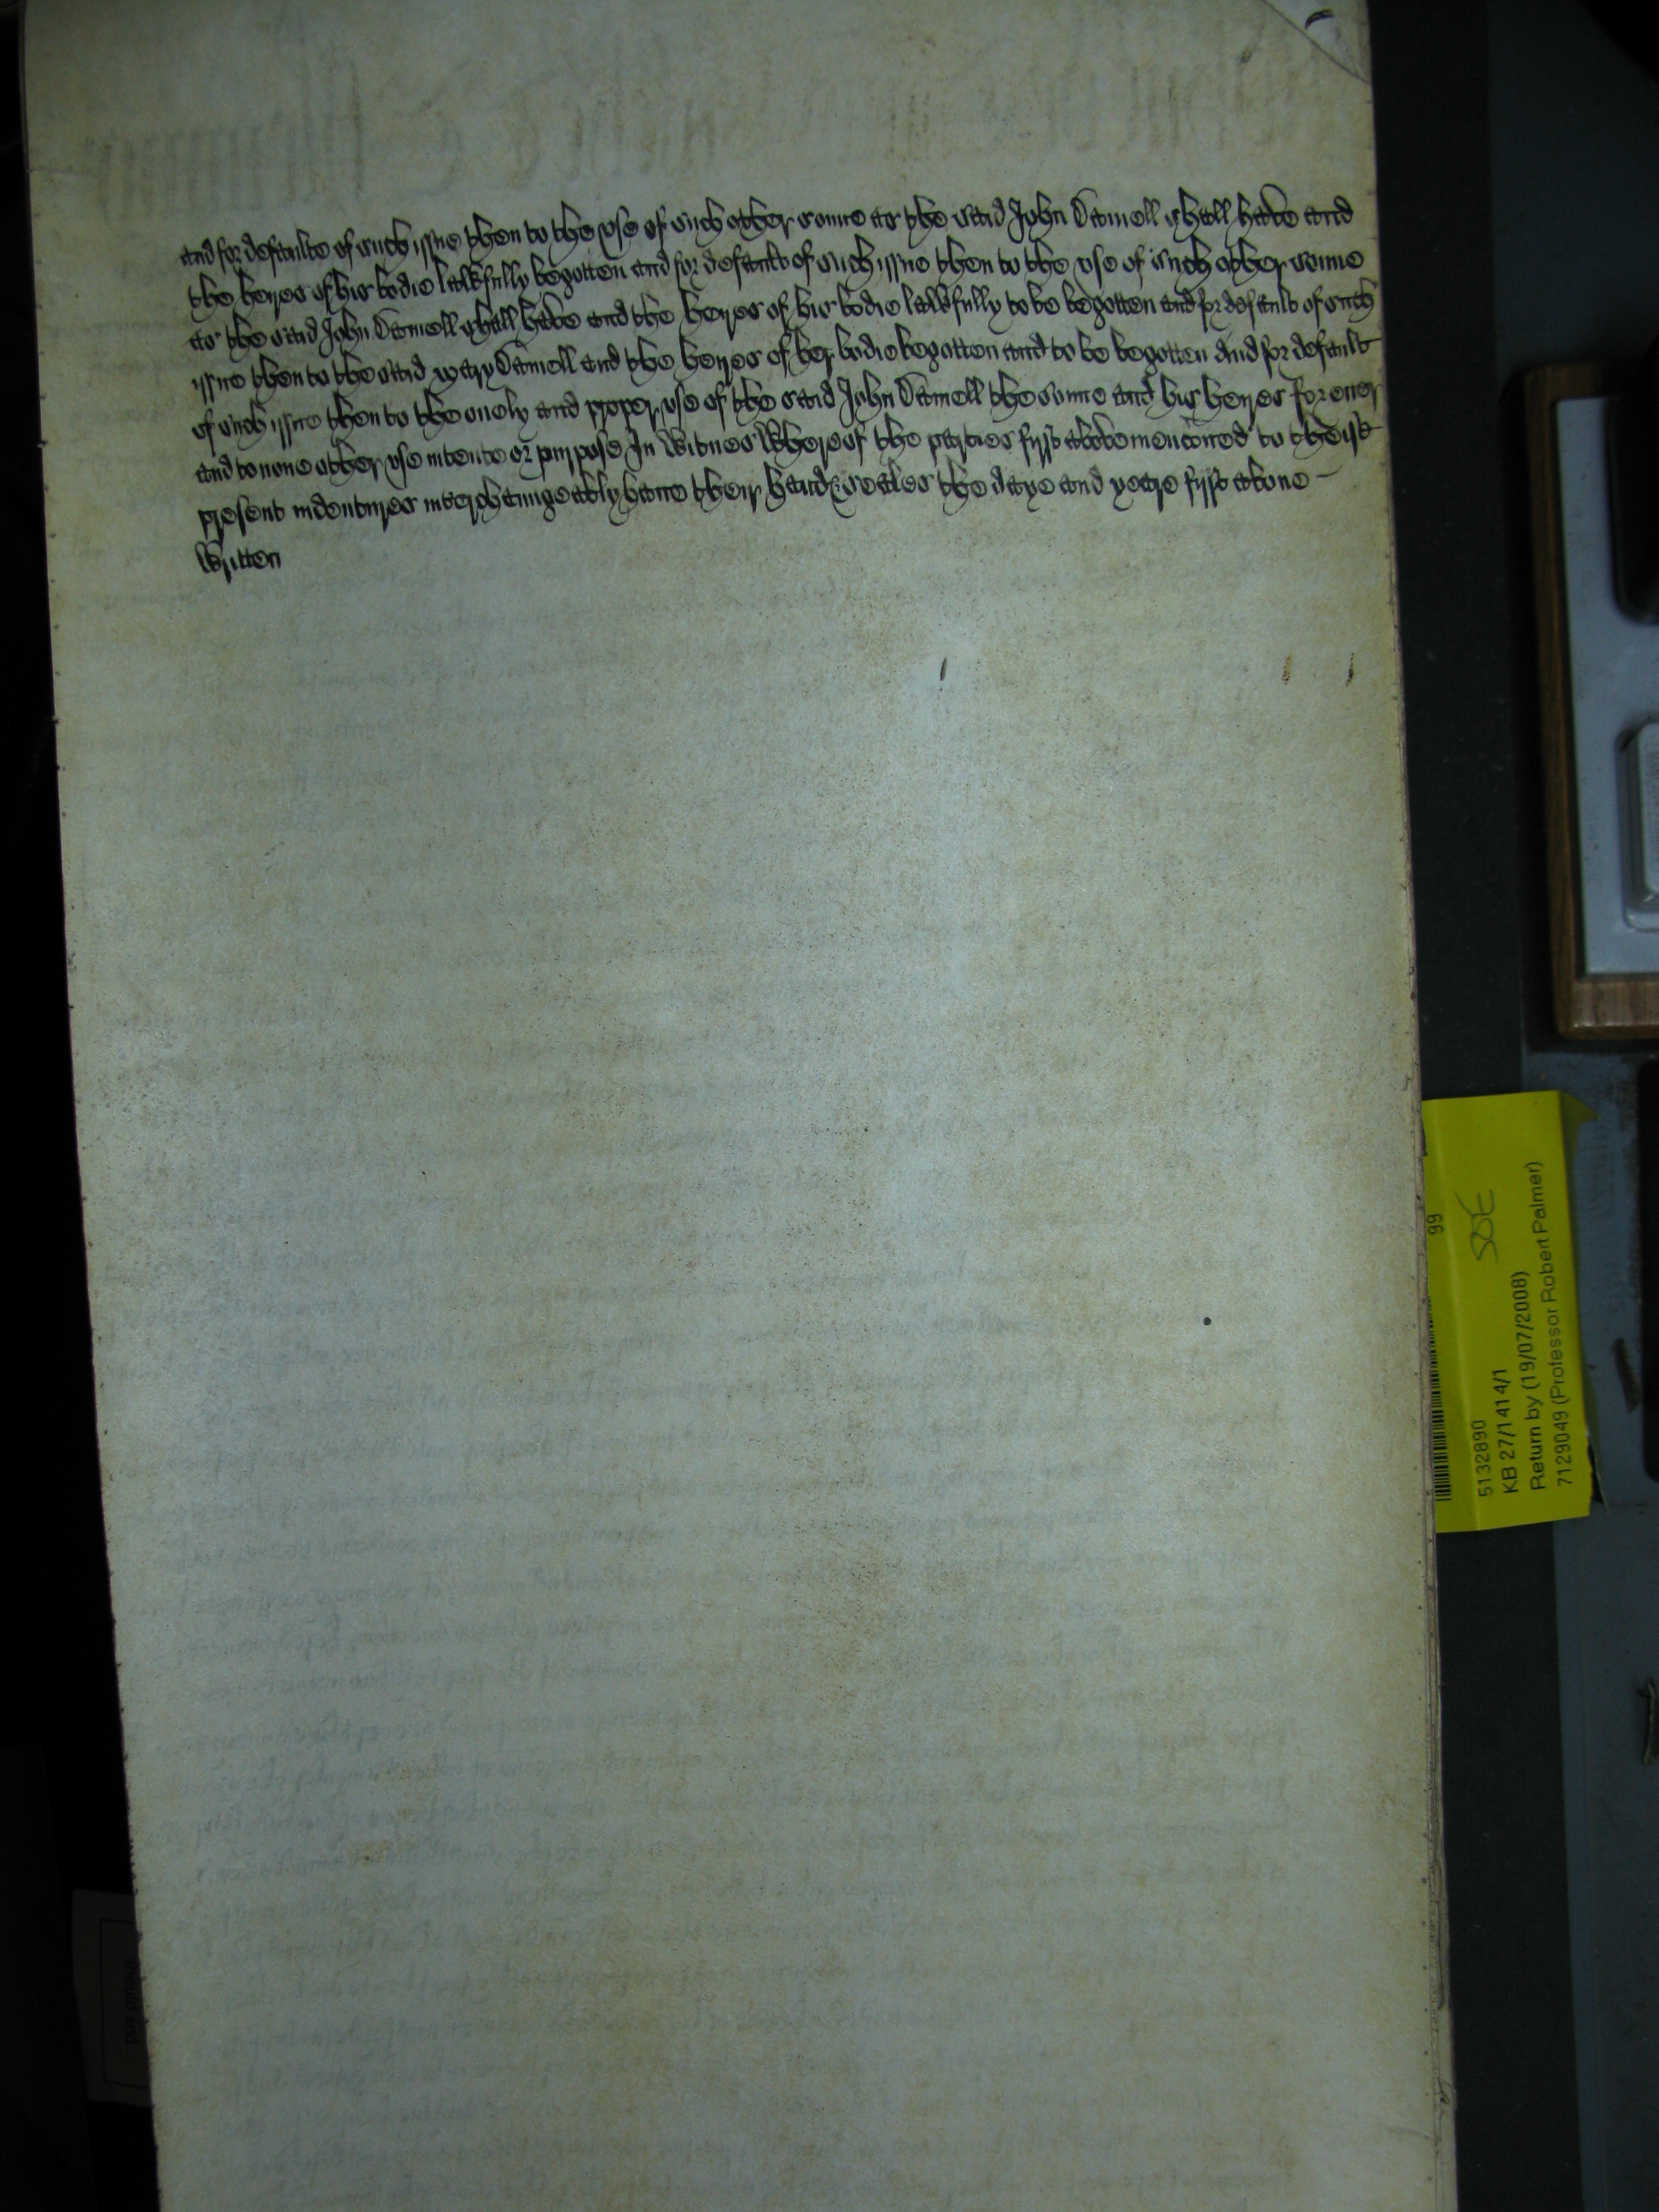 and for defaulte of such issue then to the vse of such other sonne as the said John Daniell shall have and
the heyres of his bodie lawfully begotten and for default of such issue then to the vse of such other sonne
as the said John Daniell shall have and the heyres of his bodie lawfully to be begotten and for default of such
issue then to the said mary Daniell and the heyres of her bodie begotten and to be begotten And for default
of such issue then to the onely and proper vse of the said John Daniell the sonne and his heyres for ever
and to none other vse intente or purpose In Witnes Whereof the parties first above mencioned to theis
present indentures interchaungeably have their hand seales the daye and yeare first above
Written
99
SDE
5132890
KB 27/1414/1
Return by (19/07/2008)
7129049 (Professor Robert Palmer)